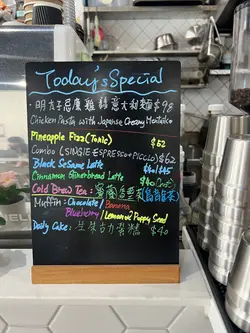 Today's Special
明太子忌廉雞絲意大利麵 $98
Chicken Pasta with Japanese Creamy Mentaiko
Pineapple Fizz (Tonic) $62
Combo (SINGLE ESPRESSO+PICCLO) $62
Black Sesame Latte $40/$45
Cinnamon Gingerbread Latte $40
Cold Brew Tea: 蜜
Muffin: Chocolate / Banana
Blueberry / Lemon & Poppy Seed
Daily Cake: 朱古力蛋糕 $40